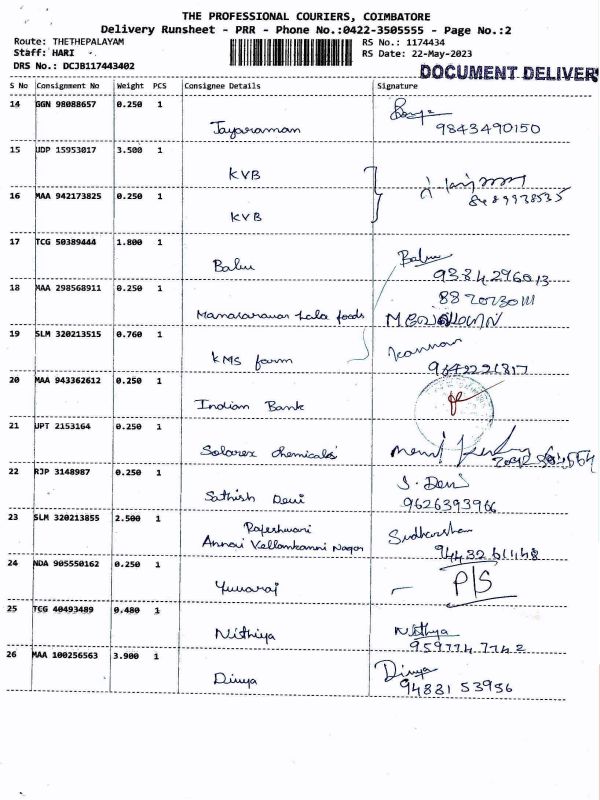 THE PROFESSIONAL COURIERS, COIMBATORE
Delivery Runsheet - PRR - Phone No.:0422-3505555 - Page No.:2
Route: THETHEPALAYAM RS No.: 1174434
Staff: HARI RS Date: 22-May-2023
DRS No.: DCJB117443402
DOCUMENT DELIVER
S No Consignment No Weight PCS Consignee Details Signature
14 GGN 98088657 0.250 1
Jayaraman 9843490150
15 UDP 15953017 3.500 1
KVB
16 MAA 942173825 0.250 1
KVB
17 TCG 50389444 1.800 1
Babu Babu
9384296013
18 MAA 298568911 0.250 1
foods
19 SLM 320213515 0.760 1
KMS farm Kannan
9642221817
20 MAA 943362612 0.250 1
Indian Bank
21 UPT 2153164 0.250 1
Solarex chemicals
22 RJP 3148987 0.250 1
Sathish Devi S. Devi
9626393966
23 SLM 320213855 2.500 1
Rajeshwari
Annai Vellankanni Nagar Sudharshan
24 NDA 905550162 0.250 1
Yuvaraj P/S
25 TCG 40493489 0.480 1
Nithiya Nithya
26 MAA 100256563 3.900 1
Divya Divya
94881 53956